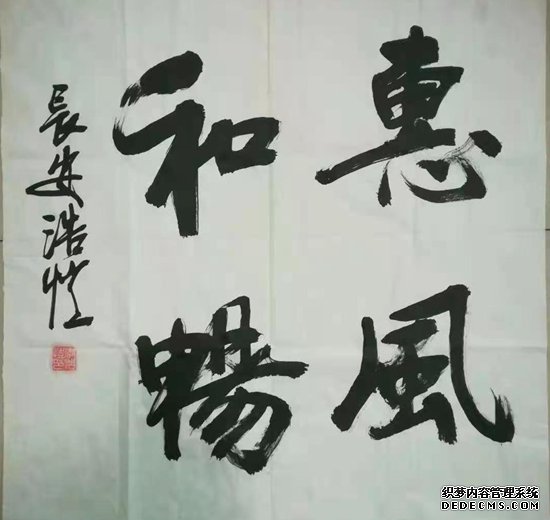 惠風
和暢
長安浩
织梦内容管理系统
DEDECMS.COM